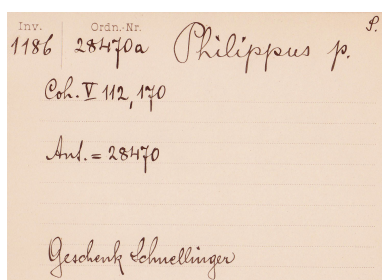 Inv. Ordn.-Nr. S.
1186 28470a Philippus p.
Coh. V 112, 170
Ant. = 28470
Geschenk Schnellinger